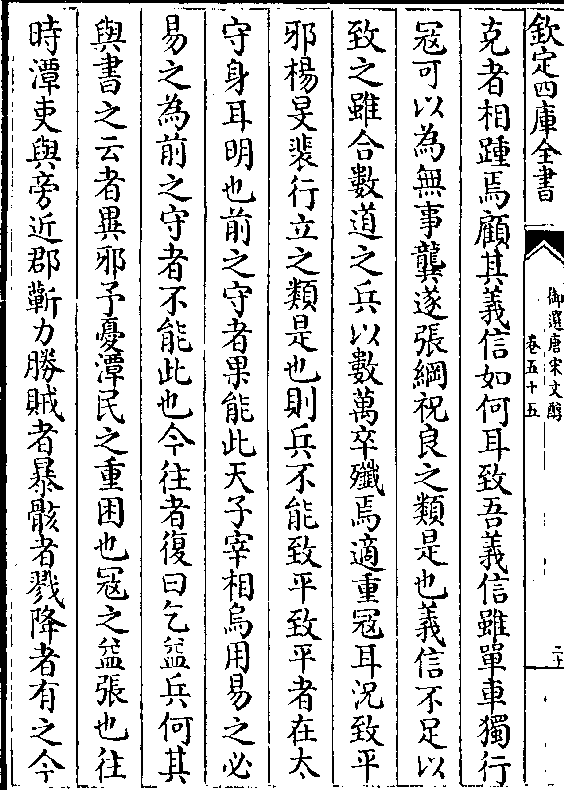 欽定四庫全書
御選唐宋文醇
卷五十五
二十
克者相踵焉顧其義信如何耳致吾義信雖單車獨行
冦可以為無事龔遂張綱祝良之類是也義信不足以
致之雖合數道之兵以數萬卒殲焉適重冦耳況致平
邪楊旻裴行立之類是也則兵不能致平致平者在太
守身耳明也前之守者果能此天子宰相烏用易之必
易之為前之守者不能此也今往者復曰乞益兵何其
與書之云者異邪予憂潭民之重困也冦之益張也往
時潭吏與旁近郡蘄力勝賊者暴骸者戮降者有之今